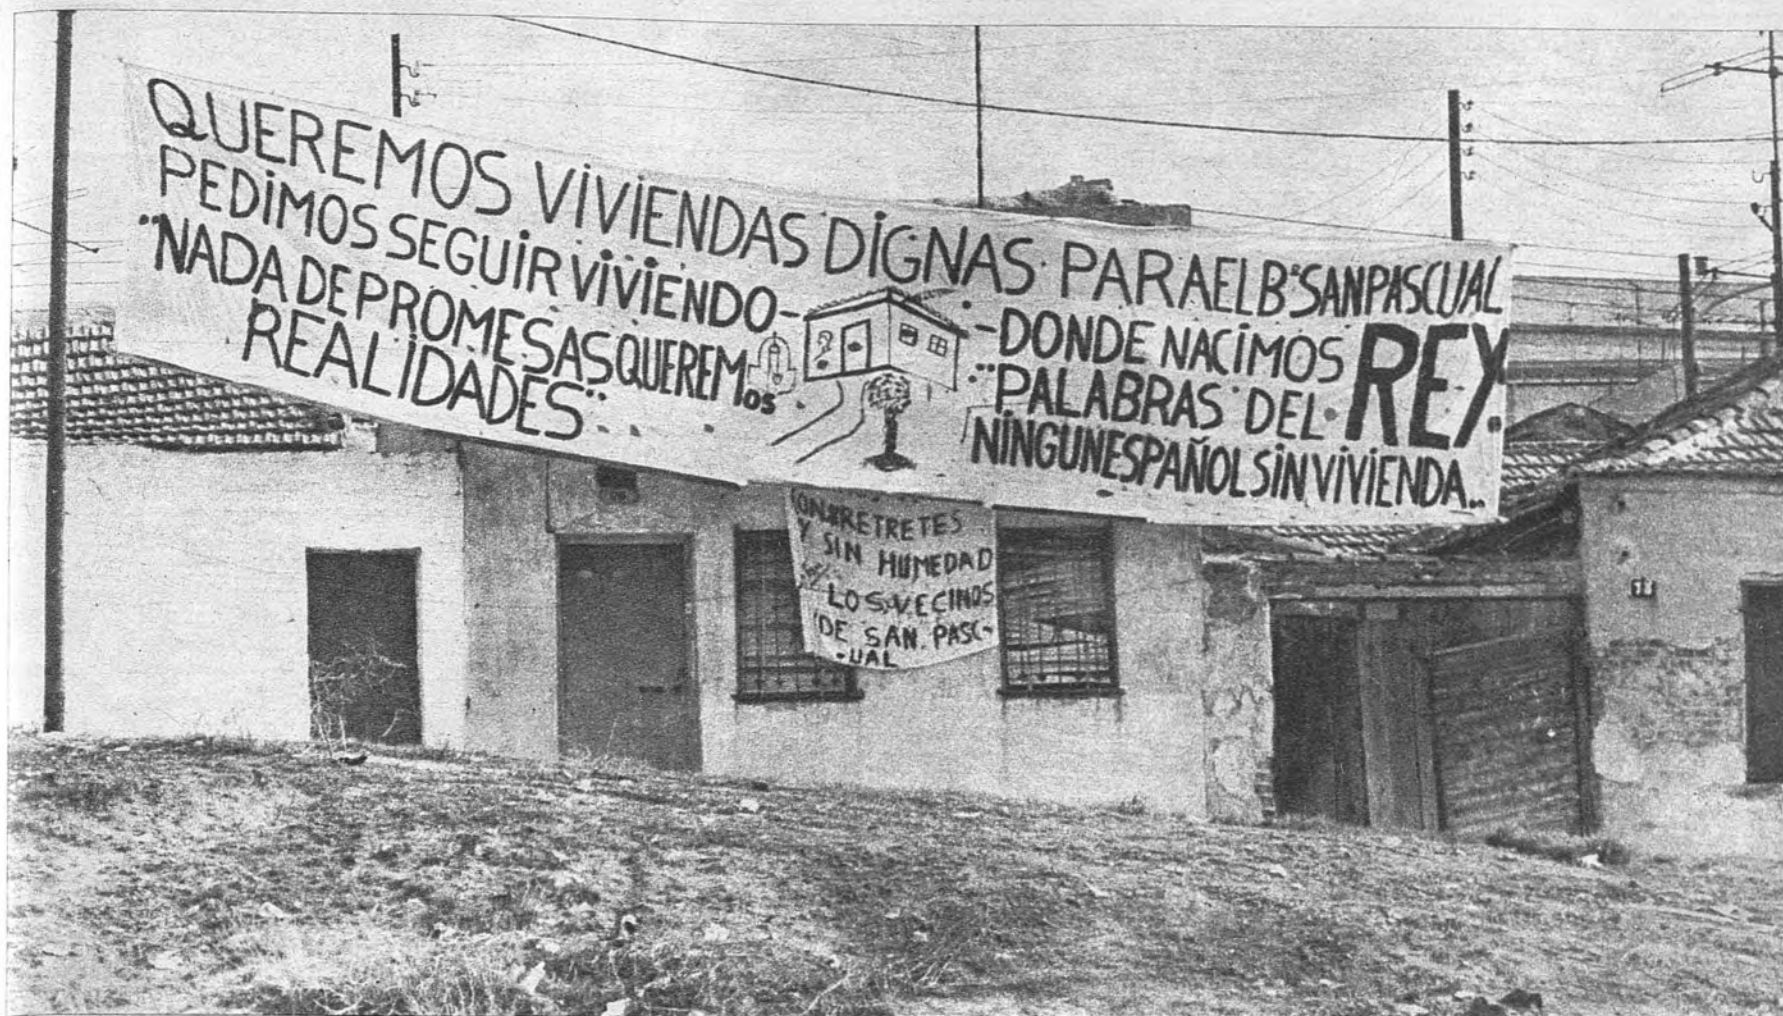 QUEREMOS VIVIENDAS DIGNAS PARA EL Bº SAN PASCUAL
PEDIMOS SEGUIR VIVIENDO-
-DONDE NACIMOS
"NADA DE PROMESAS QUEREMOS
REALIDADES"
"PALABRAS DEL REY
NINGUN ESPAÑOL SIN VIVIENDA..
CON RETRETES
Y SIN HUMEDAD
LOS VECINOS
DE SAN PASC-
-UAL